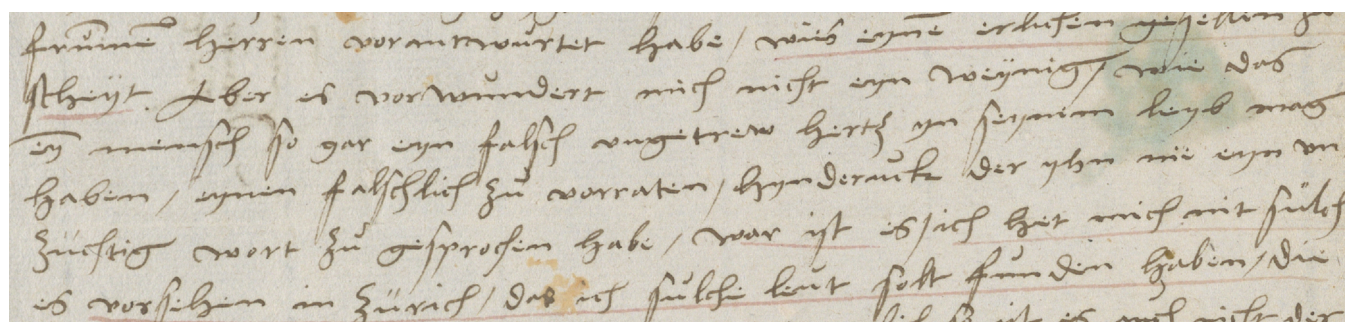 frům̄e herren vorantwůrtet habe / wies eynē erlichen gesellen
scheyt. Aber es vorwundert mich nicht eyn weynig / wie das
ey mensch so gar eyn falsch ungetrew hertz yn seynem leyb mag
haben / eynen falschlich zů vorraten / hynderuck der yhn nie eyn un
züchtig wort zů gesprochen habe / war ist es / ich het mich nit sůlch
es vorsehen in Zürich / das ich sůlche leut solt funden haben / die